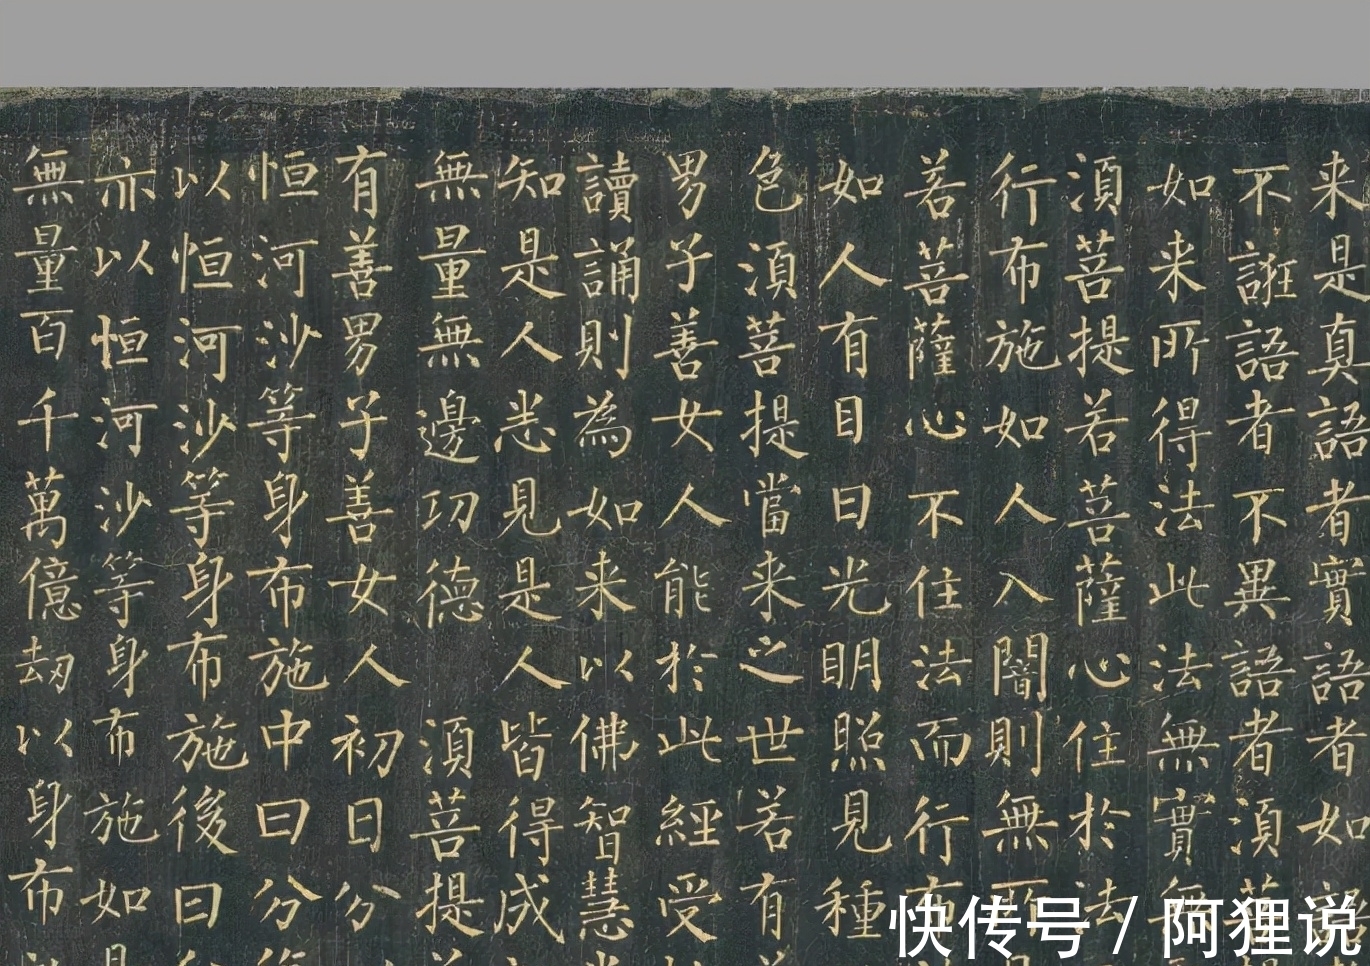 来是真語者實語者如語
不誑語者不異語者湏菩
如来所得法此法無實無
湏菩提若菩薩心住於法
行布施如人入闇則無所
若菩薩心不住法而行布
如人有目日光明照見種
色湏菩提當来之世若有
男子善女人能於此經受
讀誦則為如来以佛智慧
知是人悉見是人皆得成
無量無邊功德 湏菩提
有善男子善女人初日分
恒河沙等身布施中日分
以恒河沙等身布施後日
亦以恒河沙等身布施如
無量百千萬億劫以身布
快传号/阿狸说